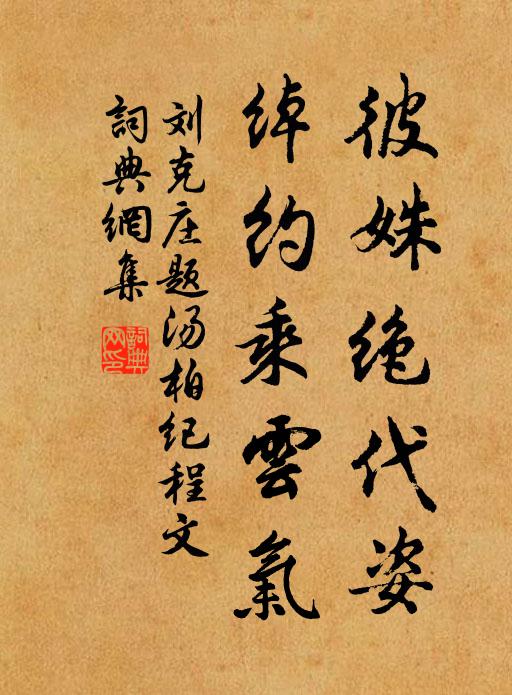 彼姝绝代姿
绰约乘雲氣
刘克庄题汤柏纪程文
詞典網集
詞典网印